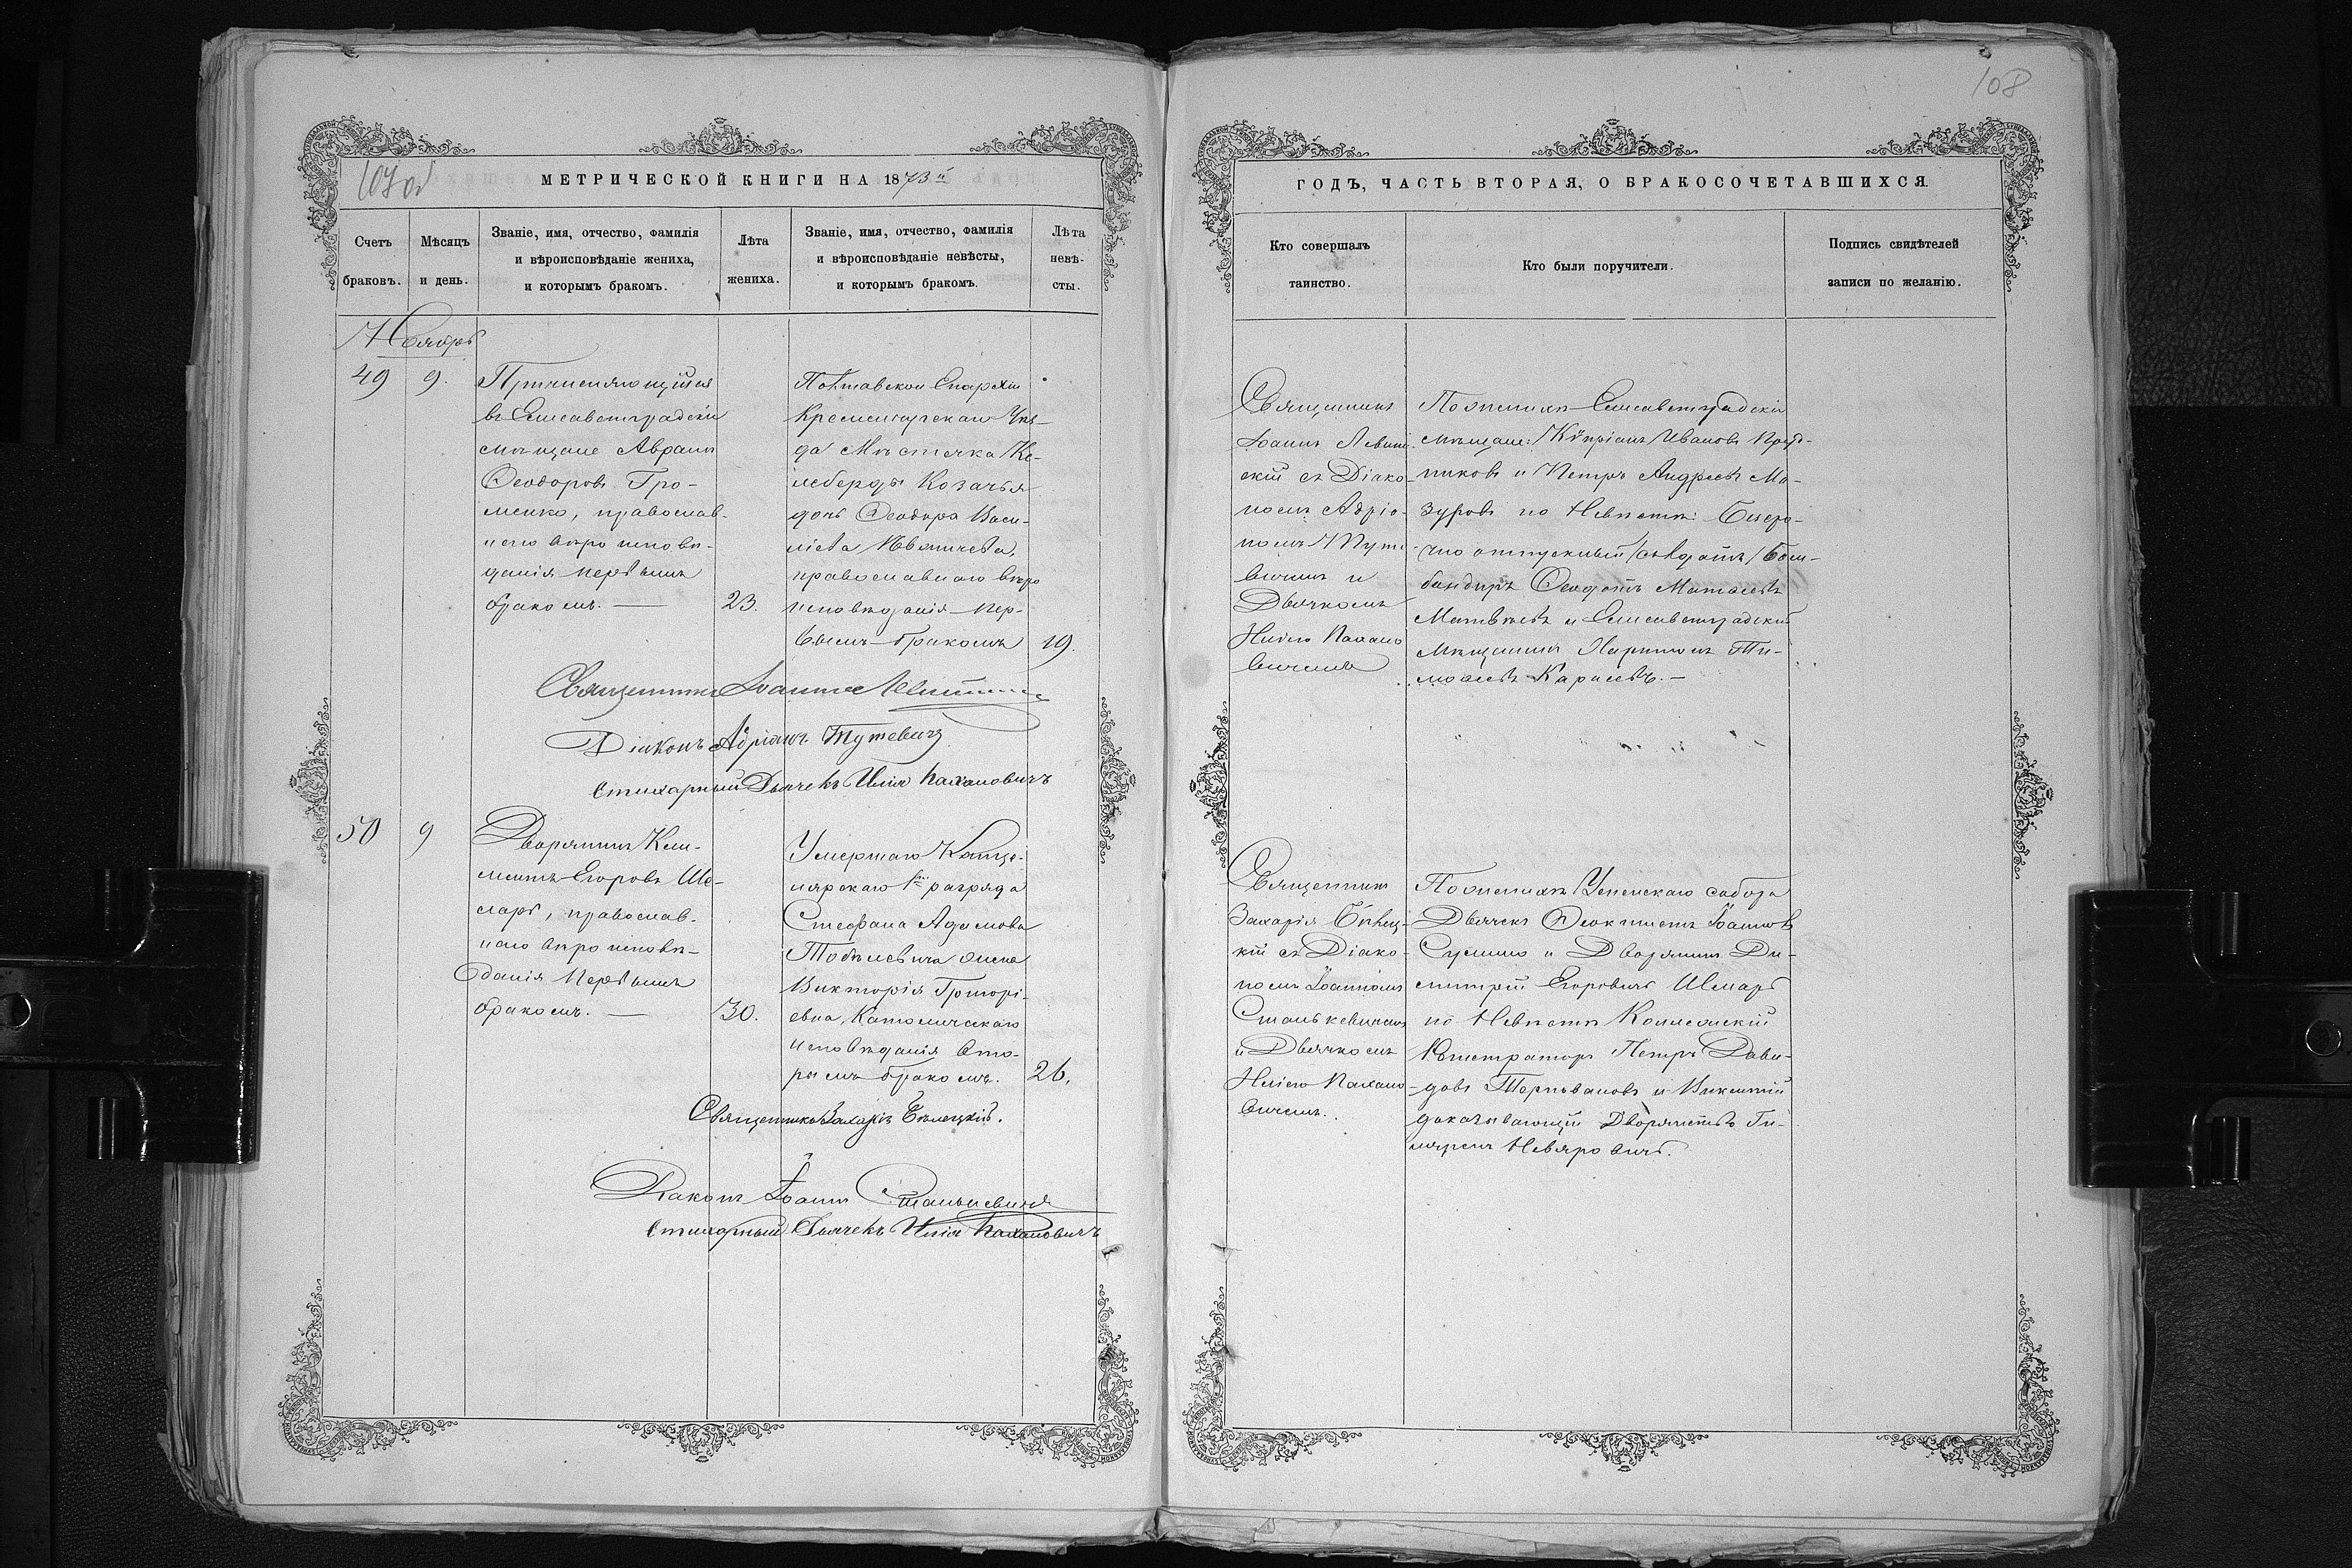 108
107об
МЕТРИЧЕСКОЙ КНИГИ НА 1873й
Счетъ браковъ.
Мѣсяцъ и день.
Званіе, имя, отчество, фамилія
и вѣроисповѣданіе жениха,
и которымъ бракомъ.
Лѣта жениха.
Званіе, имя, отчество, фамилія
и вѣроисповѣданіе невѣсты,
и которымъ бракомъ.
Лѣта невѣ-
сты.
Ноябрь
49 9.
въ Елисаветградскіе
мѣщане Авраамъ
Ѳеодоровъ Гро-
менко, православ-
наго вѣроисповѣ-
данія первымъ
бракомъ. —
23.
Полтавской Епархіи
Кременчугскаго Уѣз-
да Мѣстечка Ке-
леберды Козачья
дочь Ѳеодора Васи-
православнаго вѣро
исповѣданія пер-
вымъ бракомъ
19.
Священникъ Іоаннъ
Діаконъ Адріанъ Тутевичъ
Стихарный Дьячекъ Илія Пахаловичъ
50 9
Дворянинъ Кли-
ментъ Егоровъ Ше-
, православ-
наго вѣроисповѣ-
данія Первымъ
бракомъ. —
30.
Умершаго Канце-
лярскаго 1го разряда
Стефана Адамова
Тобилевича жена
Викторія Григорі-
евна, Католическаго
исповѣданія вто-
рымъ бракомъ.
26.
Священникъ Захарія Бѣлецкій.
Діаконъ Іоаннъ Станькевичъ
Стихарный Дьячекъ Илія Пахаловичъ
ГОДЪ, ЧАСТЬ ВТОРАЯ, О БРАКОСОЧЕТАВШИХСЯ.
Кто совершалъ
таинство.
Кто были поручители.
Подпись свидѣтелей
записи по желанію.
Священникъ
Іоаннъ Левит-
скій съ Діако-
номъ Адріа-
номъ Туте-
вичемъ и
Дьячкомъ
Иліею Пахало
вичемъ
По женихѣ Елисаветградскіе
мѣщане: Кипріанъ Ивановъ
и Петръ Андреевъ Ма-
зуровъ по Невѣстѣ: Безсро-
чно отпускный солдатъ Бом-
бандиръ Ѳеодотъ
Матвѣевъ и Елисаветградскій
мѣщанинъ Харитонъ Ти-
моѳеевъ Карасевъ. —
Священникъ
Захарія Бѣлец-
кій съ Діако-
номъ Іоанномъ
Станькевичемъ
и Дьячкомъ
Иліею Пахало-
вичемъ.
По женихѣ Успенскаго собора
Дьячекъ Ѳеоктистъ Іоанновъ
и Дворянинъ Ди-
митрій Егоровичъ
по Невѣстѣ Коллежскій
Регистраторъ Петръ Дави-
довъ и Викентій
доказывающій Дворянство Ги-
Неяровичъ.